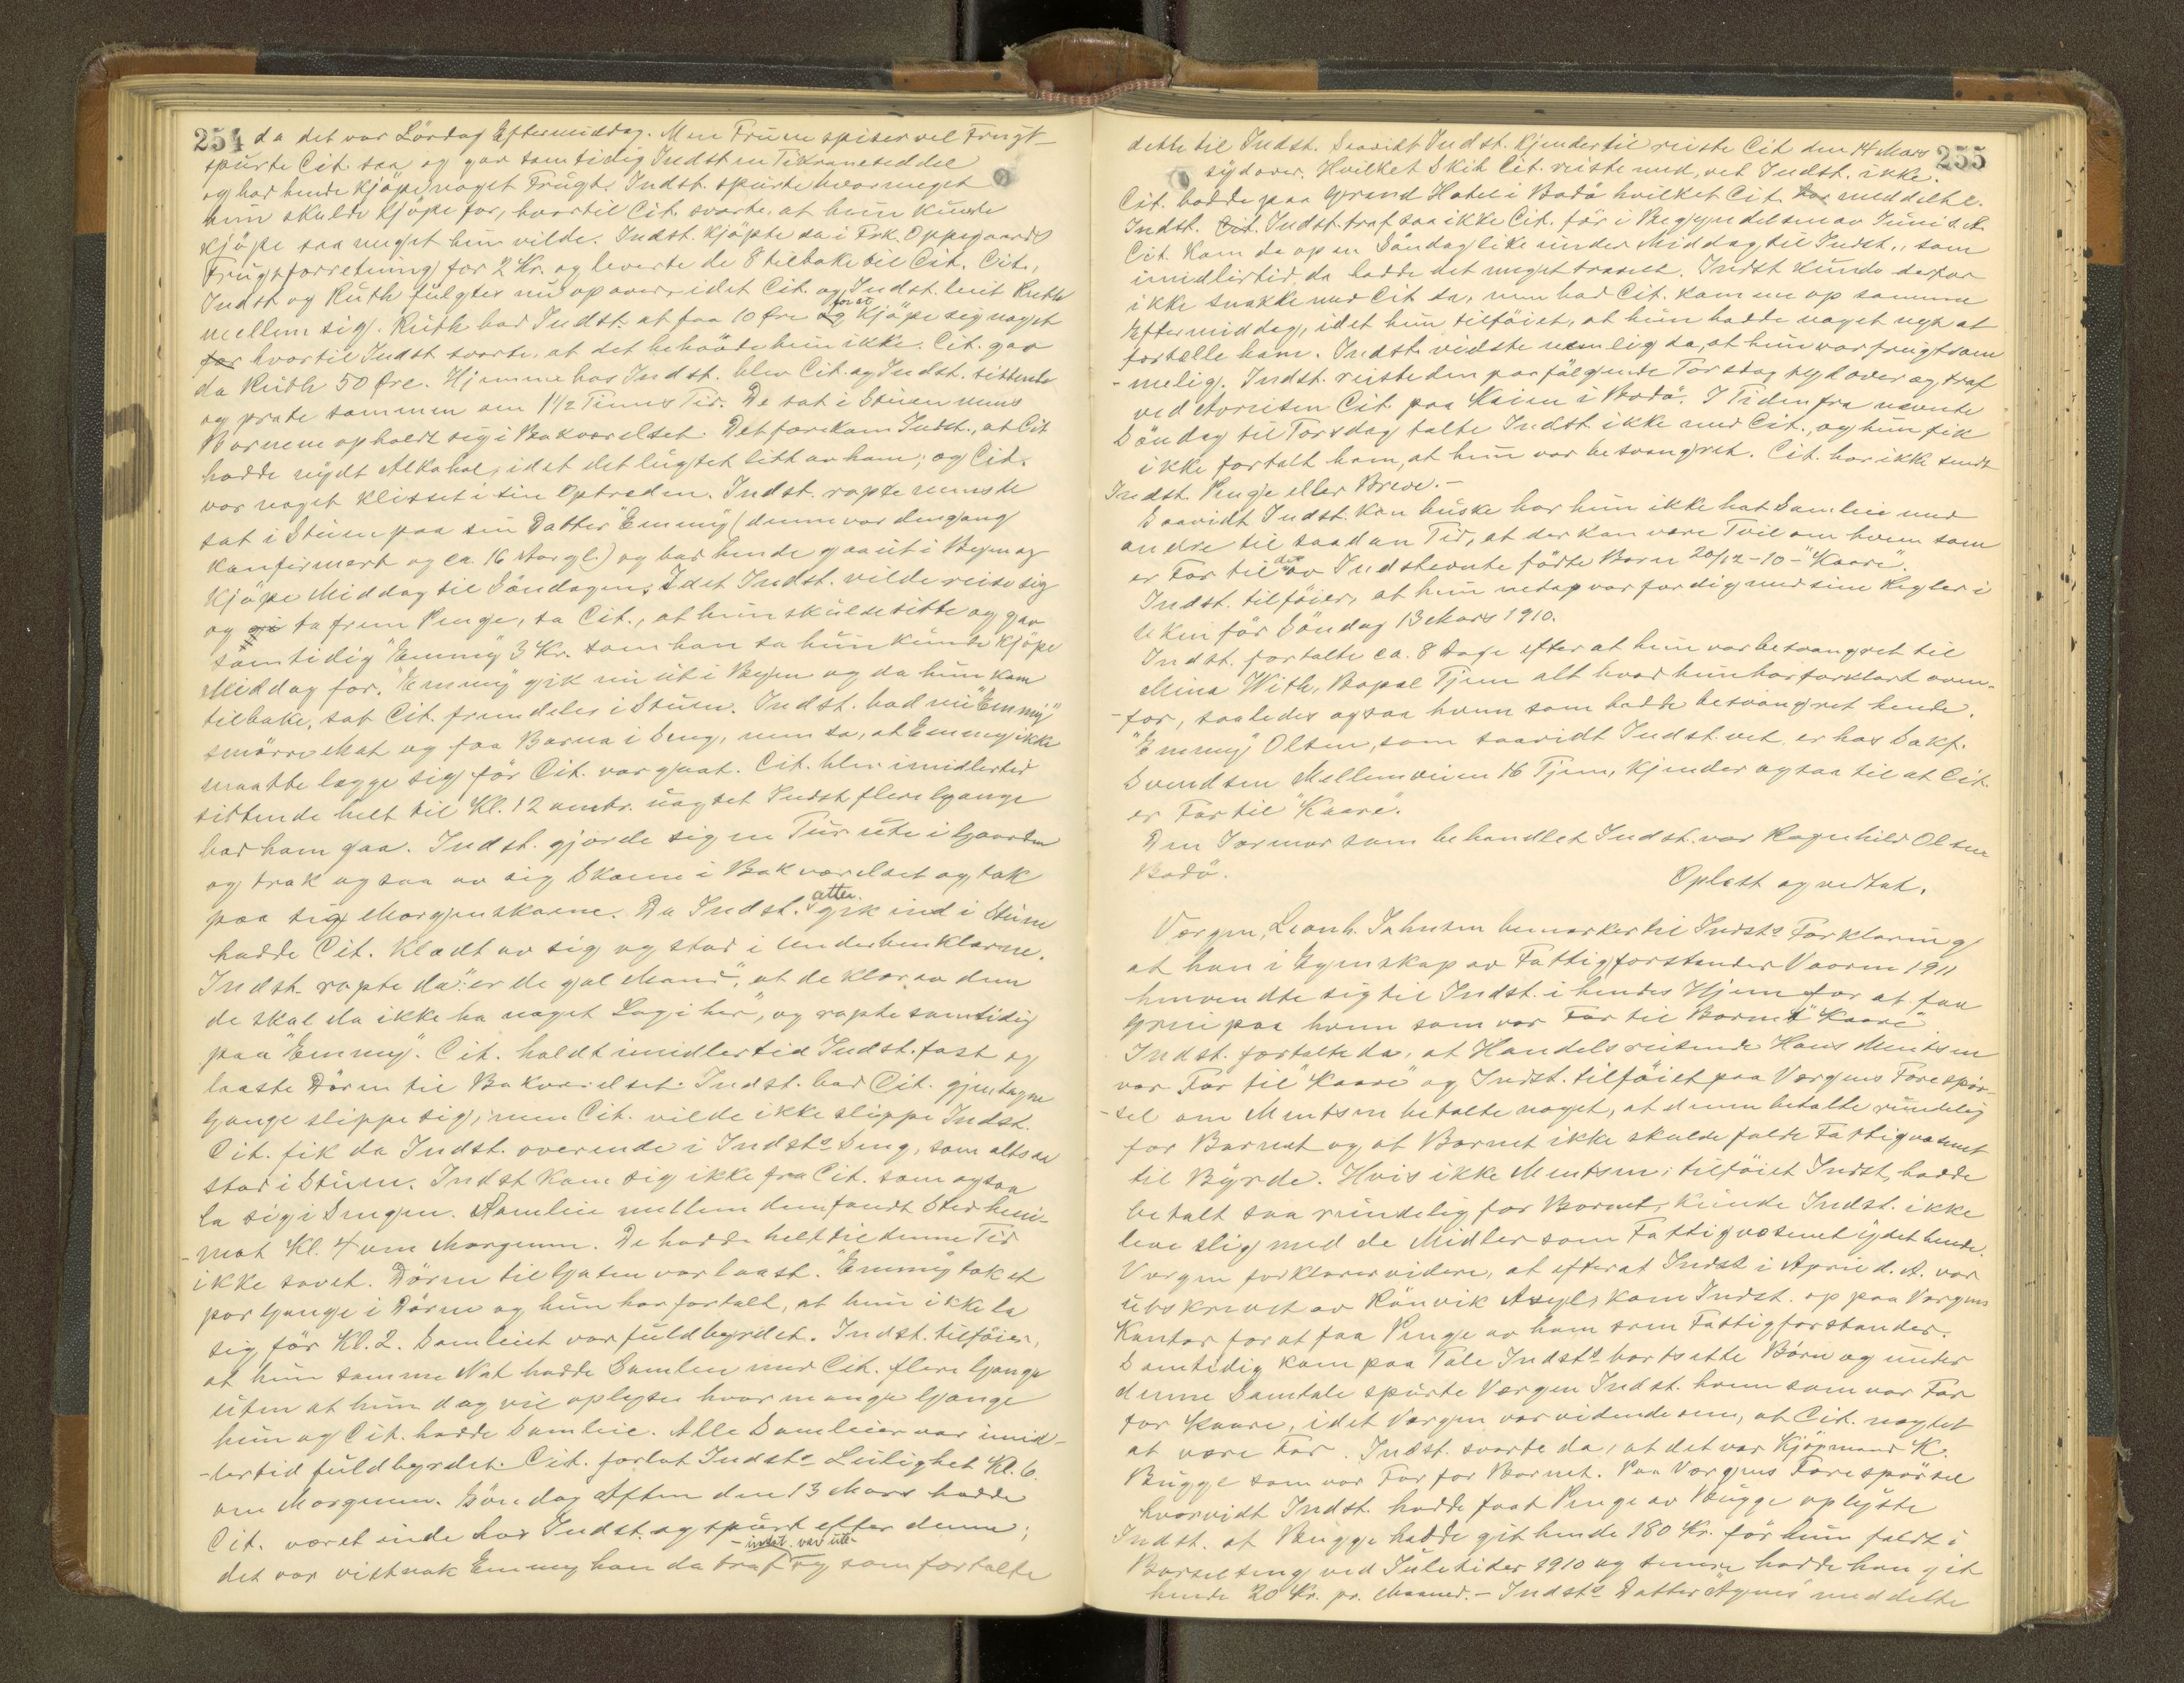 254
da det var Lördag Eftermiddag. Men Fruen spiser vel Frugt
spurte Cit. saa og gav samtidig Indst en Tikroneseddel
og bad hende kjöpe noget Frugt. Indst. spurte hvormeget
hun skulde kjöpe for, hvortil Cit. svarte, at hun kunde
kjöpe saa meget hun vilde. Indst. kjöpte da i Frk. Oppegaards
Frugtforretning for 2 Kr. og leverte de 8 tilbake til Cit. Cit.,
Indst og Ruth fulgtes nu opover, idet Cit. og Indst. leiet Ruth
mellem sig. Ruth bad Indst. at faa 10 Øre og for at kjöpe sig noget
for hvortil Indst svarte, at det behövde hun ikke. Cit. gav
da Ruth 50 Øre. Hjemme hos Indst. blev Cit. og Indst. sittende
og prate sammen om 1½ Times Tid. De sat i Stuen mens
Barnene opholdt sig i Bakværelset. Det forekom Indst., at Cit
hadde nydt Alkohol, idet det lugtet litt av ham; og Cit.
var noget klisset i sin Optræden. Indst. ropte mens de
sat i Stuen paa sin Datter "Emmy" (denne var dengang
konfirmert og ca. 16 Aar gl.) og bad hende gaa ut i Byen og
kjöpe Middag til Söndagen. Idet Indst. vilde reise sig
og gi ta frem Penge, sa Cit., at hun skulde sitte og gav
samtidig "Emmy" 3 Kr. som han sa hun kunde kjöpe
Middag for. "Emmy" gik nu ut i Byen og da hun kom
tilbake, sat Cit. fremdeles i Stuen. Indst. bad nu "Emmy"
smörre Mat og faa Barna i Seng, men sa, at Emmy ikke
maatte lægge sig för Cit. var gaat. Cit. blev imidlertid
sittende helt til Kl. 12 omtr. uagtet Indst flere Gange
bad ham gaa. Indst. gjorde sig en Tur ute i Gaarden
og trak ogsaa av sig Skoene i Bakværelset og tok
paa sig Morgenskoene. Da Indst. atter gik ind i Stuen
hadde Cit. klædt av sig og stod i Underbenklærne.
Indst. ropte da: "er de gal Mand", at de klær av dem
de skal da ikke ha noget Logi her", og ropte samtidig
paa "Emmy". Cit. holdt imidlertid Indst. fast og
laaste Dören til Bakværelset. Indst. bad Cit. gjentagne
Gange slippe sig, men Cit. vilde ikke slippe Indst.
Cit. fik da Indst. overende i Indsts Seng, som altsaa
stod i Stuen. Indst kom sig ikke fra Cit. som ogsaa
la sig i Sengen. Samleie mellem dem fandt Sted hen-
-mot Kl. 4 om Morgenen. De hadde helt til denne Tid
ikke sovet. Dören til Gaten var laast. "Emmy" tok et
par Gange i Dören og hun har fortalt, at hun ikke la
sig för Kl. 2. Samleiet var fuldbyrdet. Indst. tilföier,
at hun samme Nat hadde Samleie med Cit. flere Gange
uten at hun dog vil oplyse hvor mange Gange
hun og Cit. hadde Samleie. Alle Samleier var imid-
-lertid fuldbyrdet. Cit. forlot Indsts Leilighet Kl. 6.
om Morgenen. Söndag Aften den 13 Mars hadde
Cit. været inde hos Indst. og spurt efter denne;
det var vistnok Emmy han da traf -indst. var ute- og som fortalte
255
dette til Indst. Saavidt Indst. kjender til reiste Cit den 14 Mars
sydover. Hvilket Skib Cit. reiste med, vet Indst. ikke.
Cit. bodde paa Grand Hotel i Bodö hvilket Cit. har meddelte.
Indst. Cit. Indst. traf saa ikke Cit. för i Begyndelsen av Juni s. A.
Cit. kom da op en Söndag like under Middag til Indst., som
imidlertid da hadde det meget travelt. Indst kunde derfor
ikke snakke med Cit da, men bad Cit. komme op samme
Eftermiddag, idet hun tilföiet, at hun hadde noget nyt at
fortælle ham. Indst. vidste nemlig da, at hun var frugtsom
-melig. Indst. reiste den paafölgende Torsdag sydover og traf
ved Avreisen Cit. paa Kaien i Bodö. I Tiden fra nevnte
Söndag til Torsdag talte Indst. ikke med Cit., og hun fik
ikke fortalt ham, at hun var besvangret. Cit. har ikke sendt
Indst. Penge eller Breve.-
Saavidt Indst. kan huske har hun ikke hat Samleie med
andre til saadan Tid, at der kan være Tvil om hvem som
er Far til det av Indstevnte födte Barn 20/12-10 - "Kaare".
Indst. tilföier, at hun netop var færdig med sine Regler i
Uken för Söndag 13 Mars 1910.
Indst. fortalte ca. 8 Dage efter at hun var besvangret til
Mina With, Bopæl Tjem alt hvad hun har forklart oven-
-for, saaledes ogsaa hvem som hadde besvangret hende.
"Emmy" Olsen, som saavidt Indst. vet, er hos Sakf.
Svendsen Mellemveien 16 Tjem, kjender ogsaa til at Cit.
er Far til "Kaare".
Den Jormor som behandlet Indst. var Ragnhild Olsen
Bodö.
Oplæst og vedtat.
Værgen, Leonh. Johnsen bemerker til Indsts Forklaring
at han i Egenskap av Fattigforstander Vaaren 1911
henvendte sig til Indst. i hendes Hjem for at faa
Grei paa hvem som var Far til Barnet "Kaare"
Indst. fortalte da, at Handelsreisende Hans Mentsen
var Far til "Kaare" og Indst. tilföiet paa Værgens Forespör-
-sel om Mentsen betalte noget, at denne betalte rundelig
for Barnet og at Barnet ikke skulde falde Fattigvæsenet
til Byrde. Hvis ikke Mentsen, tilföiet Indst, hadde
betalt saa rundelig for Barnet, kunde Indst. ikke
leve slig med de Midler som Fattigvæsenet ydet hende.
Værgen forklarer videre, at efterat Indst i April d. A. var
utskrevet av Rönvik Asyl, kom Indst. op paa Værgens
Kontor for at faa Penge av ham som Fattigforstander.
Samtidig kom paa Tale Indsts bortsatte Börn og under
denne Samtale spurte Værgen Indst. hvem som var Far
for Kaare, idet Værgen var vidende om, at Cit. nægtet
at være Far. Indst. svarte da, at det var Kjöpmand K.
Bugge som var Far for Barnet. Paa Værgens Forespörsel
hvorvidt Indst. hadde faat Penge av Bugge oplyste
Indst. at Bugge hadde git hende 180 Kr. för hun faldt i
Barselseng ved Juletider 1910 og senere hadde han git
hende 20 Kr. pr. Maaned.- Indsts Datter "Agnes" meddelte